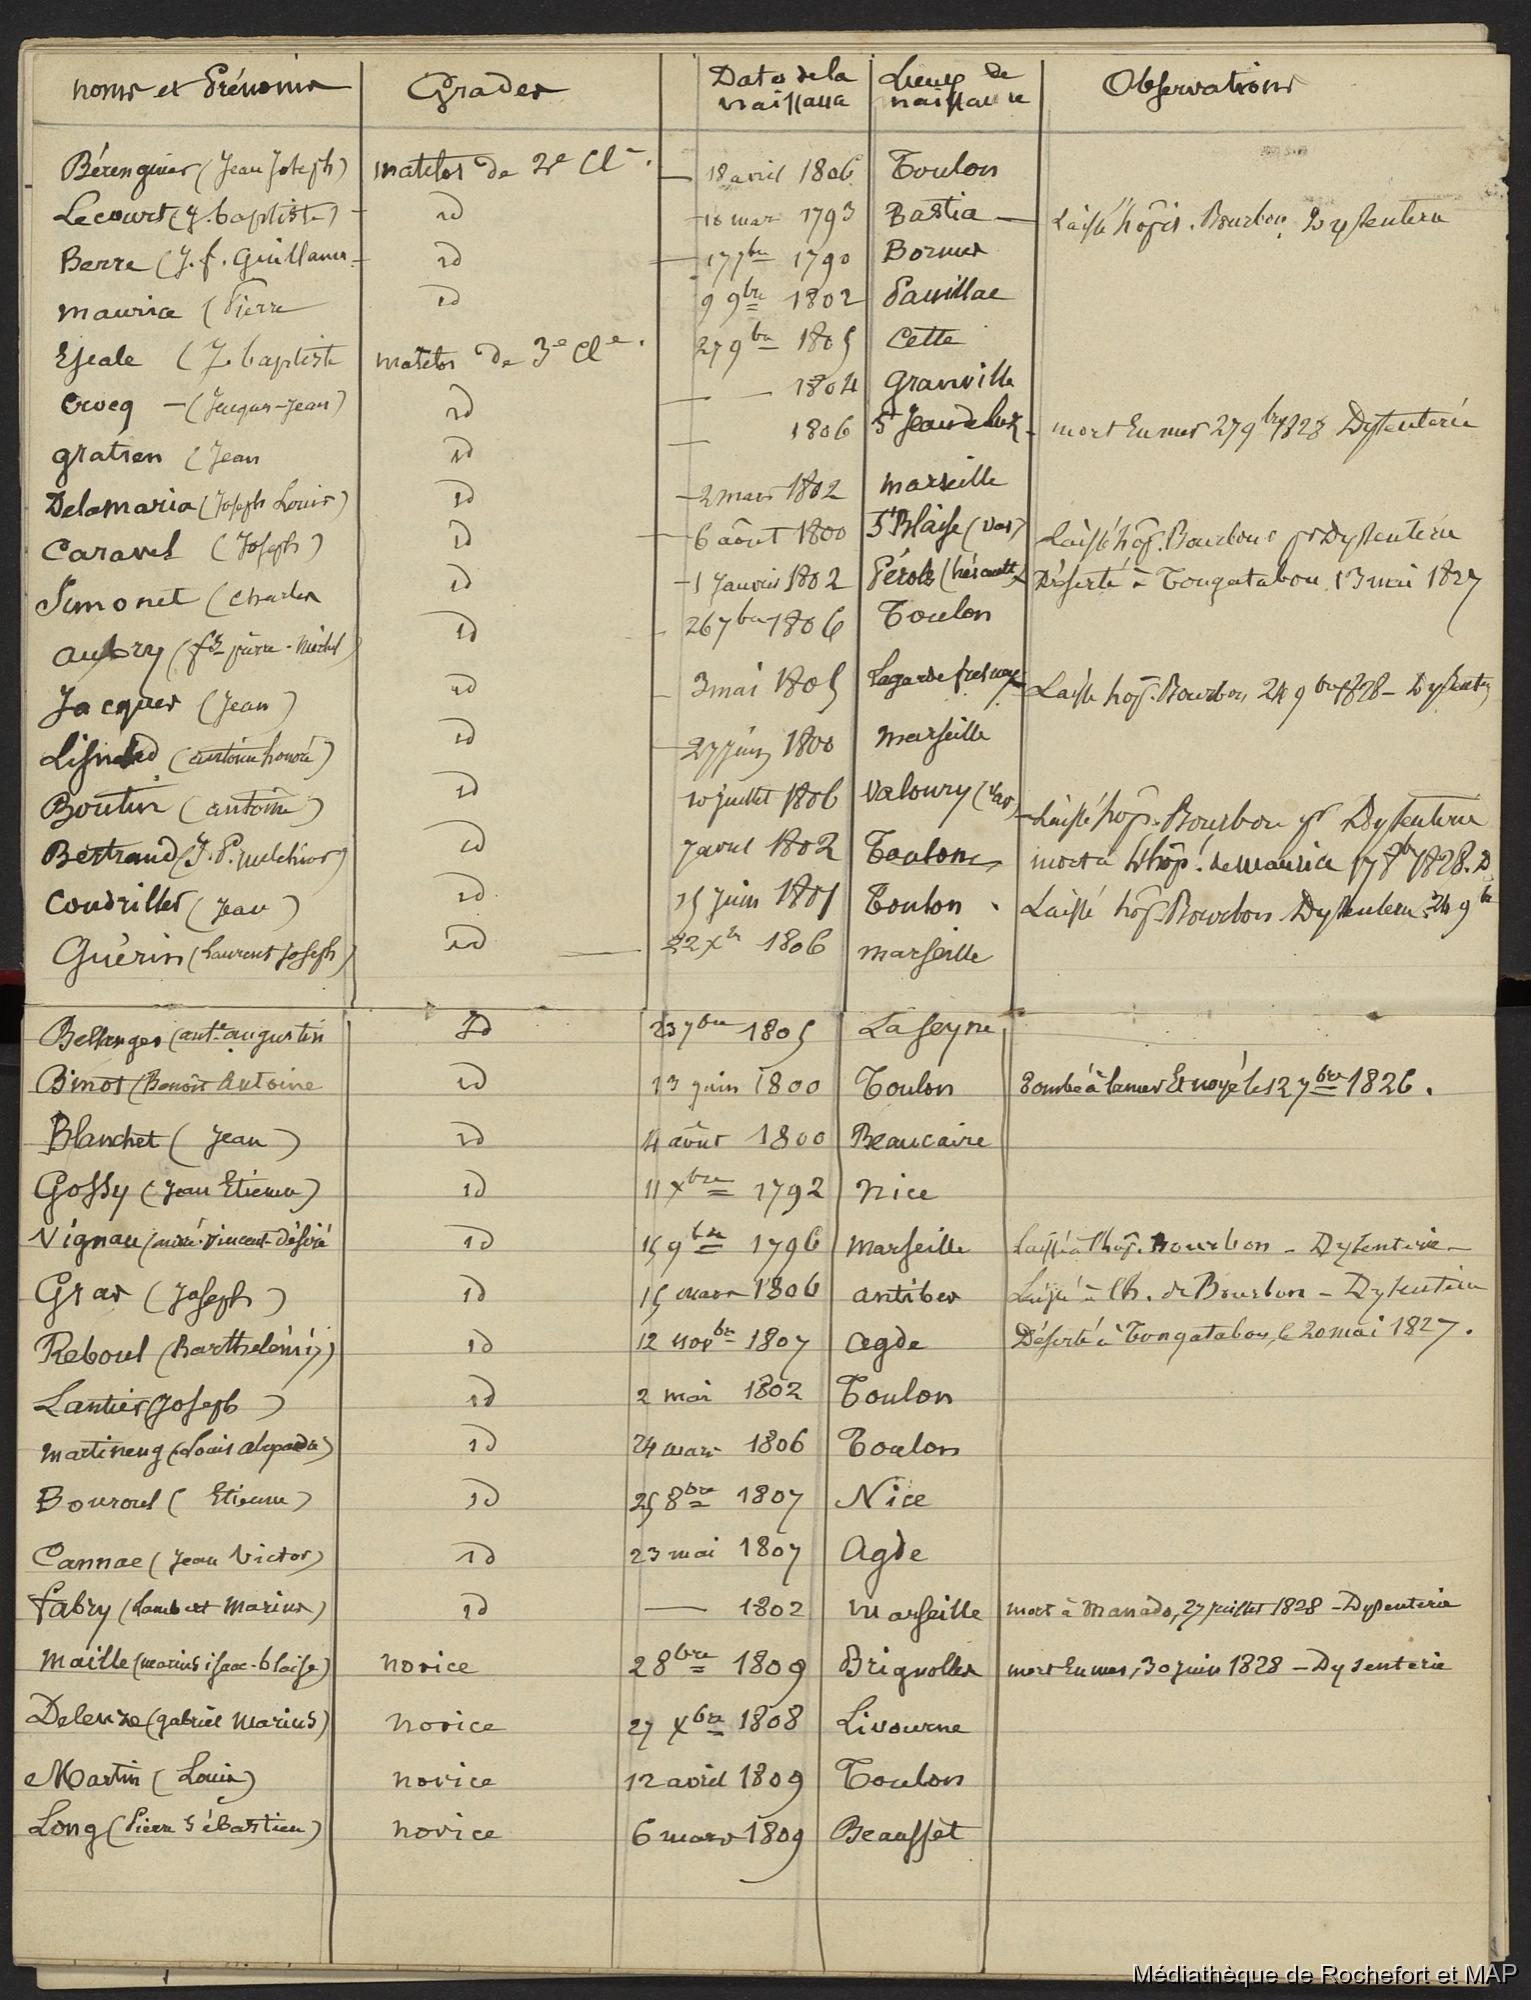 Noms et Prénoms Grades Date de la naissance Lieux de naissance Observations
Bérenguier (Jean Joseph) matelos de 2e Cle. — 18 avril 1806 Toulon
Lecourt (J. baptiste) - id - 18 mar 1793 Bastia — Laissé hôpis. Bourbon, Dyssenterie
Berre (J. f. Guillaume - id — 17 7bre 1790 Bormes
Maurice (Pierre id 9 9bre 1802 Pauillac
Escale (J. baptiste matelos de 3e Cle. 27 9bre 1805 Cette
Crocq - (Jacques-Jean) id — — 1804 Granville
gratien (Jean id — 1806 St Jean de luz - mort en mer 27 9bre 1828 Dyssenterie
Delamaria (Joseph Louis) id - 2 mars 1802 Marseille
Caravel (Joseph) id - 6 août 1800 St Blaise (Var) Laissé hôp. Bourbon pr Dyssenterie
Simonet (Charles id - 1 Janvier 1802 Pérols (hérault) Déserté à Tongatabou 13 mai 1827
Aubry (fs pierre-Michel) id - 26 7bre 1806 Toulon
Jacques (Jean) id - 3 mai 1805 Lagarde - Laissé hôp. Bourbon 24 9bre 1828 - Dyssent
(antoine honoré) id - 27 juin 1800 Marseille
Boutin (antoine) id 10 juillet 1806 Valoury (Var) - Laissé hôp. Bourbon pr Dyssenterie
Bertrand (J. P. melchior) id 7 avril 1802 Toulon mort à l'hôp. de Maurice 17 8bre 1828. D
Coudriller (Jean) id 15 juin 1801 Toulon . Laissé hôp. Bourbon Dyssenterie 24 9bre
Guérin (Laurent Joseph) id — 22 Xbre 1806 Marseille
Bellanger (ante augustin Id 23 7bre 1805 La Seyne
Binot (Benoît Antoine id 13 juin 1800 Toulon Tombé à la mer Et noyé le 12 7bre 1826.
Blanchet (Jean) id 4 août 1800 Beaucaire
Gossy (Jean Etienne) id 11 Xbre 1792 Nice
Vignau (André-Vincent-Désiré id 15 9bre 1796 Marseille Laissé à l'hôp. Bourbon - Dyssenterie -
Gras (Joseph) id 15 mars 1806 Antibes Laissé à l'h. de Bourbon - Dyssenterie
Reboul (Barthelémy) id 12 novbre 1807 Agde Déserté à Tongatabou, le 20 mai 1827.
Lantier (Joseph) id 2 mai 1802 Toulon
Martineng (Louis id 24 mars 1806 Toulon
Bouroul (Etienne) id 25 8bre 1807 Nice
Cannac (Jean Victor) id 23 mai 1807 Agde
Fabry (Lambert Marius) id — 1802 Marseille mort à Manado, 27 juillet 1828 - Dyssenterie
Maille (Marius isaac-blaise) Novice 2 8bre 1809 Brignolles mort en mer, 30 juin 1828 - Dysenterie
Deleuze (gabriel Marius) Novice 27 Xbre 1808 Livourne
Martin (Louis) Novice 12 avril 1809 Toulon
Long (Pierre Sébastien) Novice 6 mars 1809 Beausset
Médiathèque de Rochefort et MAP